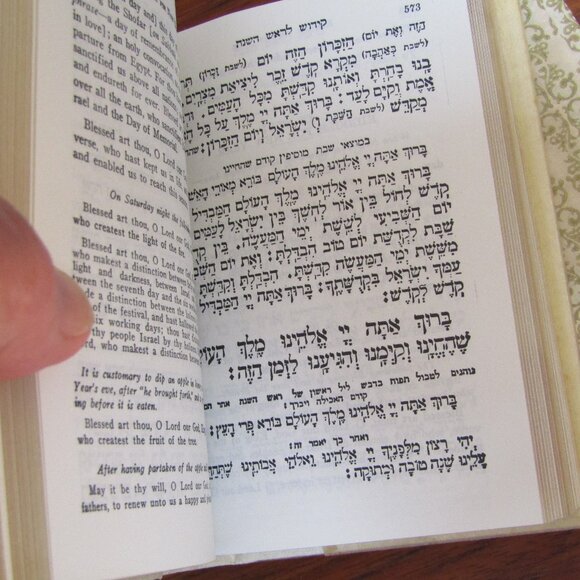 day and]
phrase—a
the Shofar
love]; an holy
parture from Egypt. For
sanctified us above all
and endureth for ever. Blessed
over all the earth, who
rael and the Day of Memorial.
Blessed art thou, O Lord our
verse, who hast kept us in life,
and enabled us to reach this
On Saturday night the
Blessed art thou, O Lord our God,
who createst the light of the fire.
Blessed art thou, O Lord our
who makest a distinction between
light and darkness, between Israel
tween the seventh day and the six
a distinction between the
of the festival, and hast hallowed
six working days; thou hast
thy people Israel by thy holiness.
who makest a distinction between
It is customary to dip an apple in
Year's eve, after "he brought forth," and
ing before it is eaten.
Blessed art thou, O Lord our God, King
who createst the fruit of the tree.
After having partaken of the apple
May it be thy will, O Lord our God
fathers, to renew unto us a happy and
קידוש לראש השנת 573
הַזֶּה וְאֶת יוֹם) הַזִּכָּרוֹן הַזֶּה יוֹם (לשבת זִכְרוֹן)
(לשבת בְּאַהֲבָה) מִקְרָא קֹדֶשׁ זֵכֶר לִיצִיאַת מִצְרָיִם:
בָנוּ בָחַרְתָּ וְאוֹתָנוּ קִדַּשְׁתָּ מִכָּל הָעַמִּים.
אֱמֶת וְקַיָּם לָעַד: בָּרוּךְ אַתָּה יְיָ מֶלֶךְ עַל כָּל
מְקַדֵּשׁ (לשבת הַשַּׁבָּת וְ) יִשְׂרָאֵל וְיוֹם הַזִּכָּרוֹן:
במוצאי שבת מוסיפין קודם שהחיינו
בָּרוּךְ אַתָּה יְיָ אֱלֹהֵינוּ מֶלֶךְ הָעוֹלָם בּוֹרֵא מְאוֹרֵי הָאֵשׁ
בָּרוּךְ אַתָּה יְיָ אֱלֹהֵינוּ מֶלֶךְ הָעוֹלָם הַמַּבְדִּיל
קֹדֶשׁ לְחוֹל בֵּין אוֹר לְחֹשֶׁךְ בֵּין יִשְׂרָאֵל לָעַמִּים
יוֹם הַשְּׁבִיעִי לְשֵׁשֶׁת יְמֵי הַמַּעֲשֶׂה. בֵּין קְדֻשַּׁת
שַׁבָּת לִקְדֻשַּׁת יוֹם טוֹב הִבְדַּלְתָּ: וְאֶת יוֹם
מִשֵּׁשֶׁת יְמֵי הַמַּעֲשֶׂה קִדַּשְׁתָּ. הִבְדַּלְתָּ וְקִדַּשְׁתָּ
עַמְּךָ יִשְׂרָאֵל בִּקְדֻשָּׁתֶךָ: בָּרוּךְ אַתָּה יְיָ הַמַּבְדִּיל
קֹדֶשׁ לְקֹדֶשׁ:
בָּרוּךְ אַתָּה יְיָ אֱלֹהֵינוּ מֶלֶךְ
שֶׁהֶחֱיָנוּ וְקִיְּמָנוּ וְהִגִּיעָנוּ לַזְּמַן הַזֶּה:
נוהגים לטבול תפוח בדבש ליל ראשון של ראש השנה אחר
קודם האכילה ויברך:
בָּרוּךְ אַתָּה יְיָ אֱלֹהֵינוּ מֶלֶךְ הָעוֹלָם בּוֹרֵא פְּרִי הָעֵץ:
ואחר כך יאמר זה:
יְהִי רָצוֹן מִלְּפָנֶיךָ יְיָ אֱלֹהֵינוּ וֵאלֹהֵי אֲבוֹתֵינוּ שֶׁתְּחַדֵּשׁ
עָלֵינוּ שָׁנָה טוֹבָה וּמְתוּקָה: